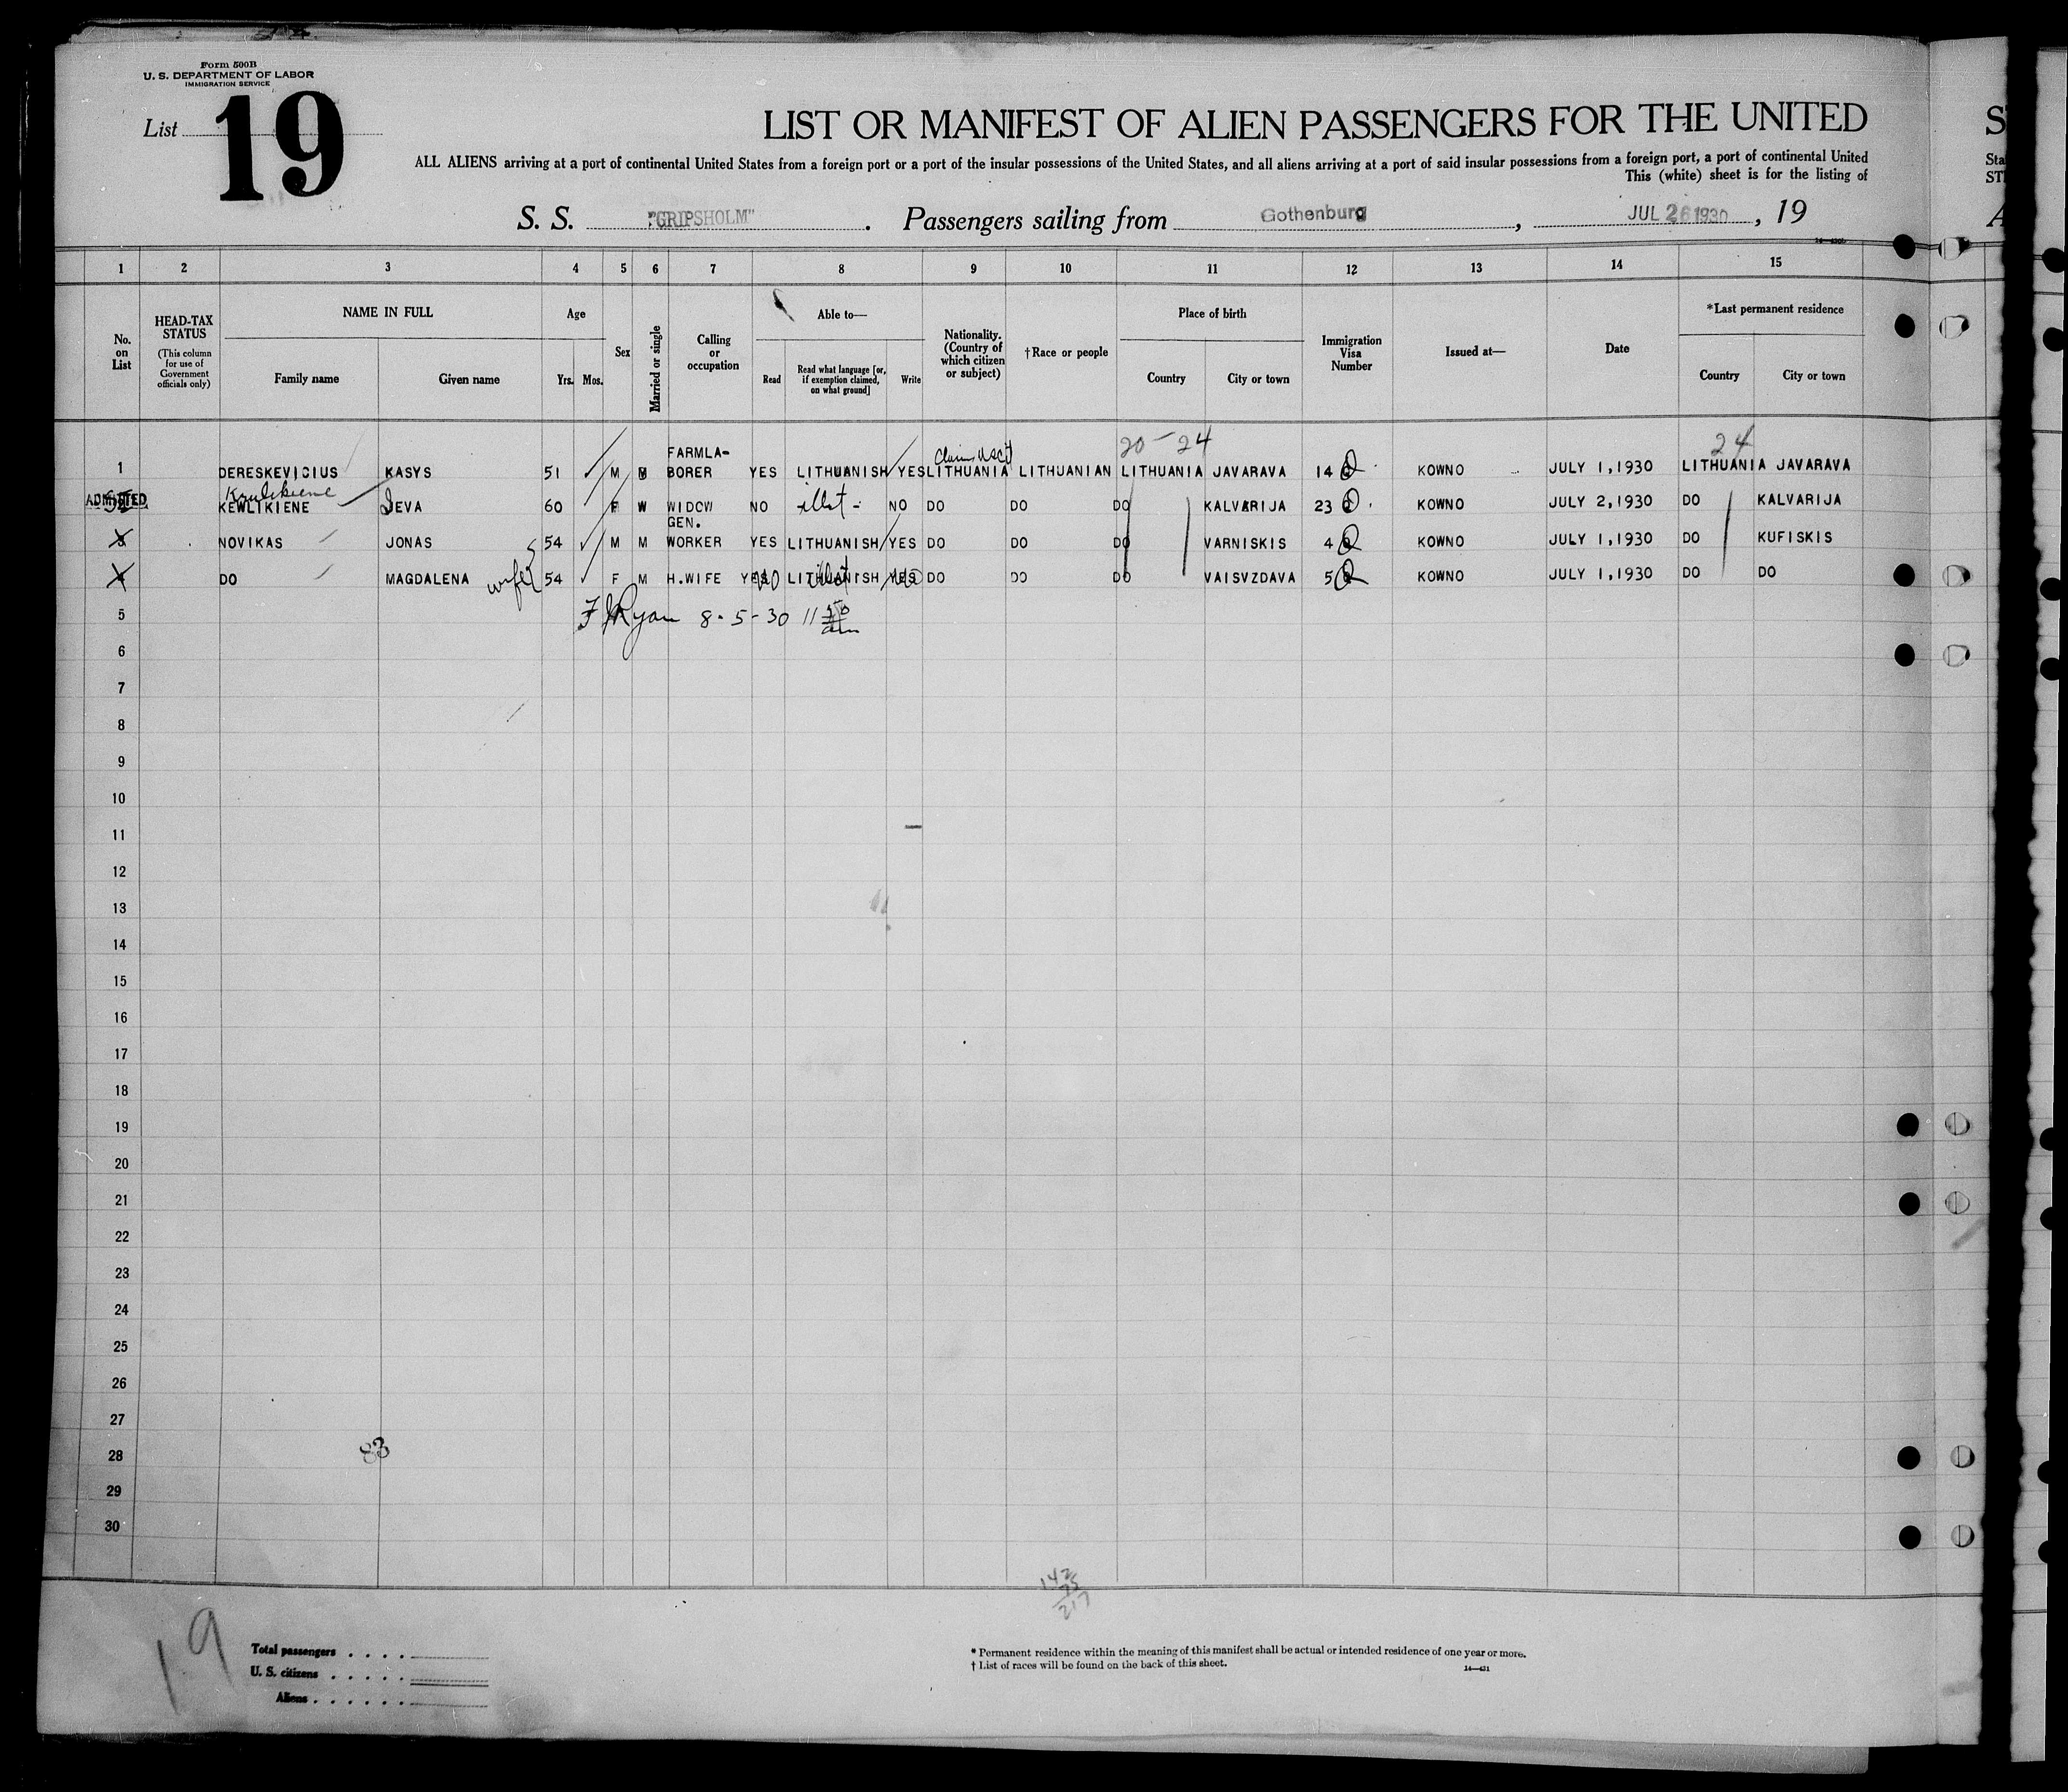 Form 500B
U. S. DEPARTMENT OF LABOR
IMMIGRATION SERVICE
List 19
LIST OR MANIFEST OF ALIEN PASSENGERS FOR THE UNITED
ALL ALIENS arriving at a port of continental United States from a foreign port or a port of the insular possessions of the United States, and all aliens arriving at a port of said insular possessions from a foreign port, a port of continental United
This (white) sheet is for the listing of
S. S. "GRIPSHOLM" . Passengers sailing from Gothenburg , JUL 26 1930 , 19
1 2 3 4 5 6 7 8 9 10 11 12 13 14 15
No. on List
HEAD-TAX STATUS
(This column for use of Government officials only)
NAME IN FULL
Family name Given name
Age
Yrs. Mos.
Sex
Married or single
Calling or occupation
Able to—
Read
Read what language [or, if exemption claimed, on what ground]
Write
Nationality. (Country of which citizen or subject)
†Race or people
Place of birth
Country City or town
Immigration Visa Number
Issued at—
Date
*Last permanent residence
Country City or town
20 - 24 24
1 DERESKEVICIUS KASYS 51 M M FARMLA-BORER YES LITHUANISH YES LITHUANIA LITHUANIAN LITHUANIA JAVARAVA 14 KOWNO JULY 1,1930 LITHUANIA JAVARAVA
ADMITTED KEWLIKIENE JEVA 60 F W WIDOW NO illit- NO DO DO DO KALVARIJA 23 KOWNO JULY 2,1930 DO KALVARIJA
3 NOVIKAS JONAS 54 M M GEN. WORKER YES LITHUANISH YES DO DO DO VARNISKIS 4 KOWNO JULY 1,1930 DO KUFISKIS
4 DO MAGDALENA wife 54 F M H.WIFE YES NO LITHUANISH illit YES NO DO DO DO VAISVZDAVA 5 KOWNO JULY 1,1930 DO DO
5 F J Ryan 8-5-30 11 50 am
6
7
8
9
10
11
12
13
14
15
16
17
18
19
20
21
22
23
24
25
26
27
28 83
29
30
142
75
217
19
Total passengers
U. S. citizens
Aliens
* Permanent residence within the meaning of this manifest shall be actual or intended residence of one year or more.
† List of races will be found on the back of this sheet.